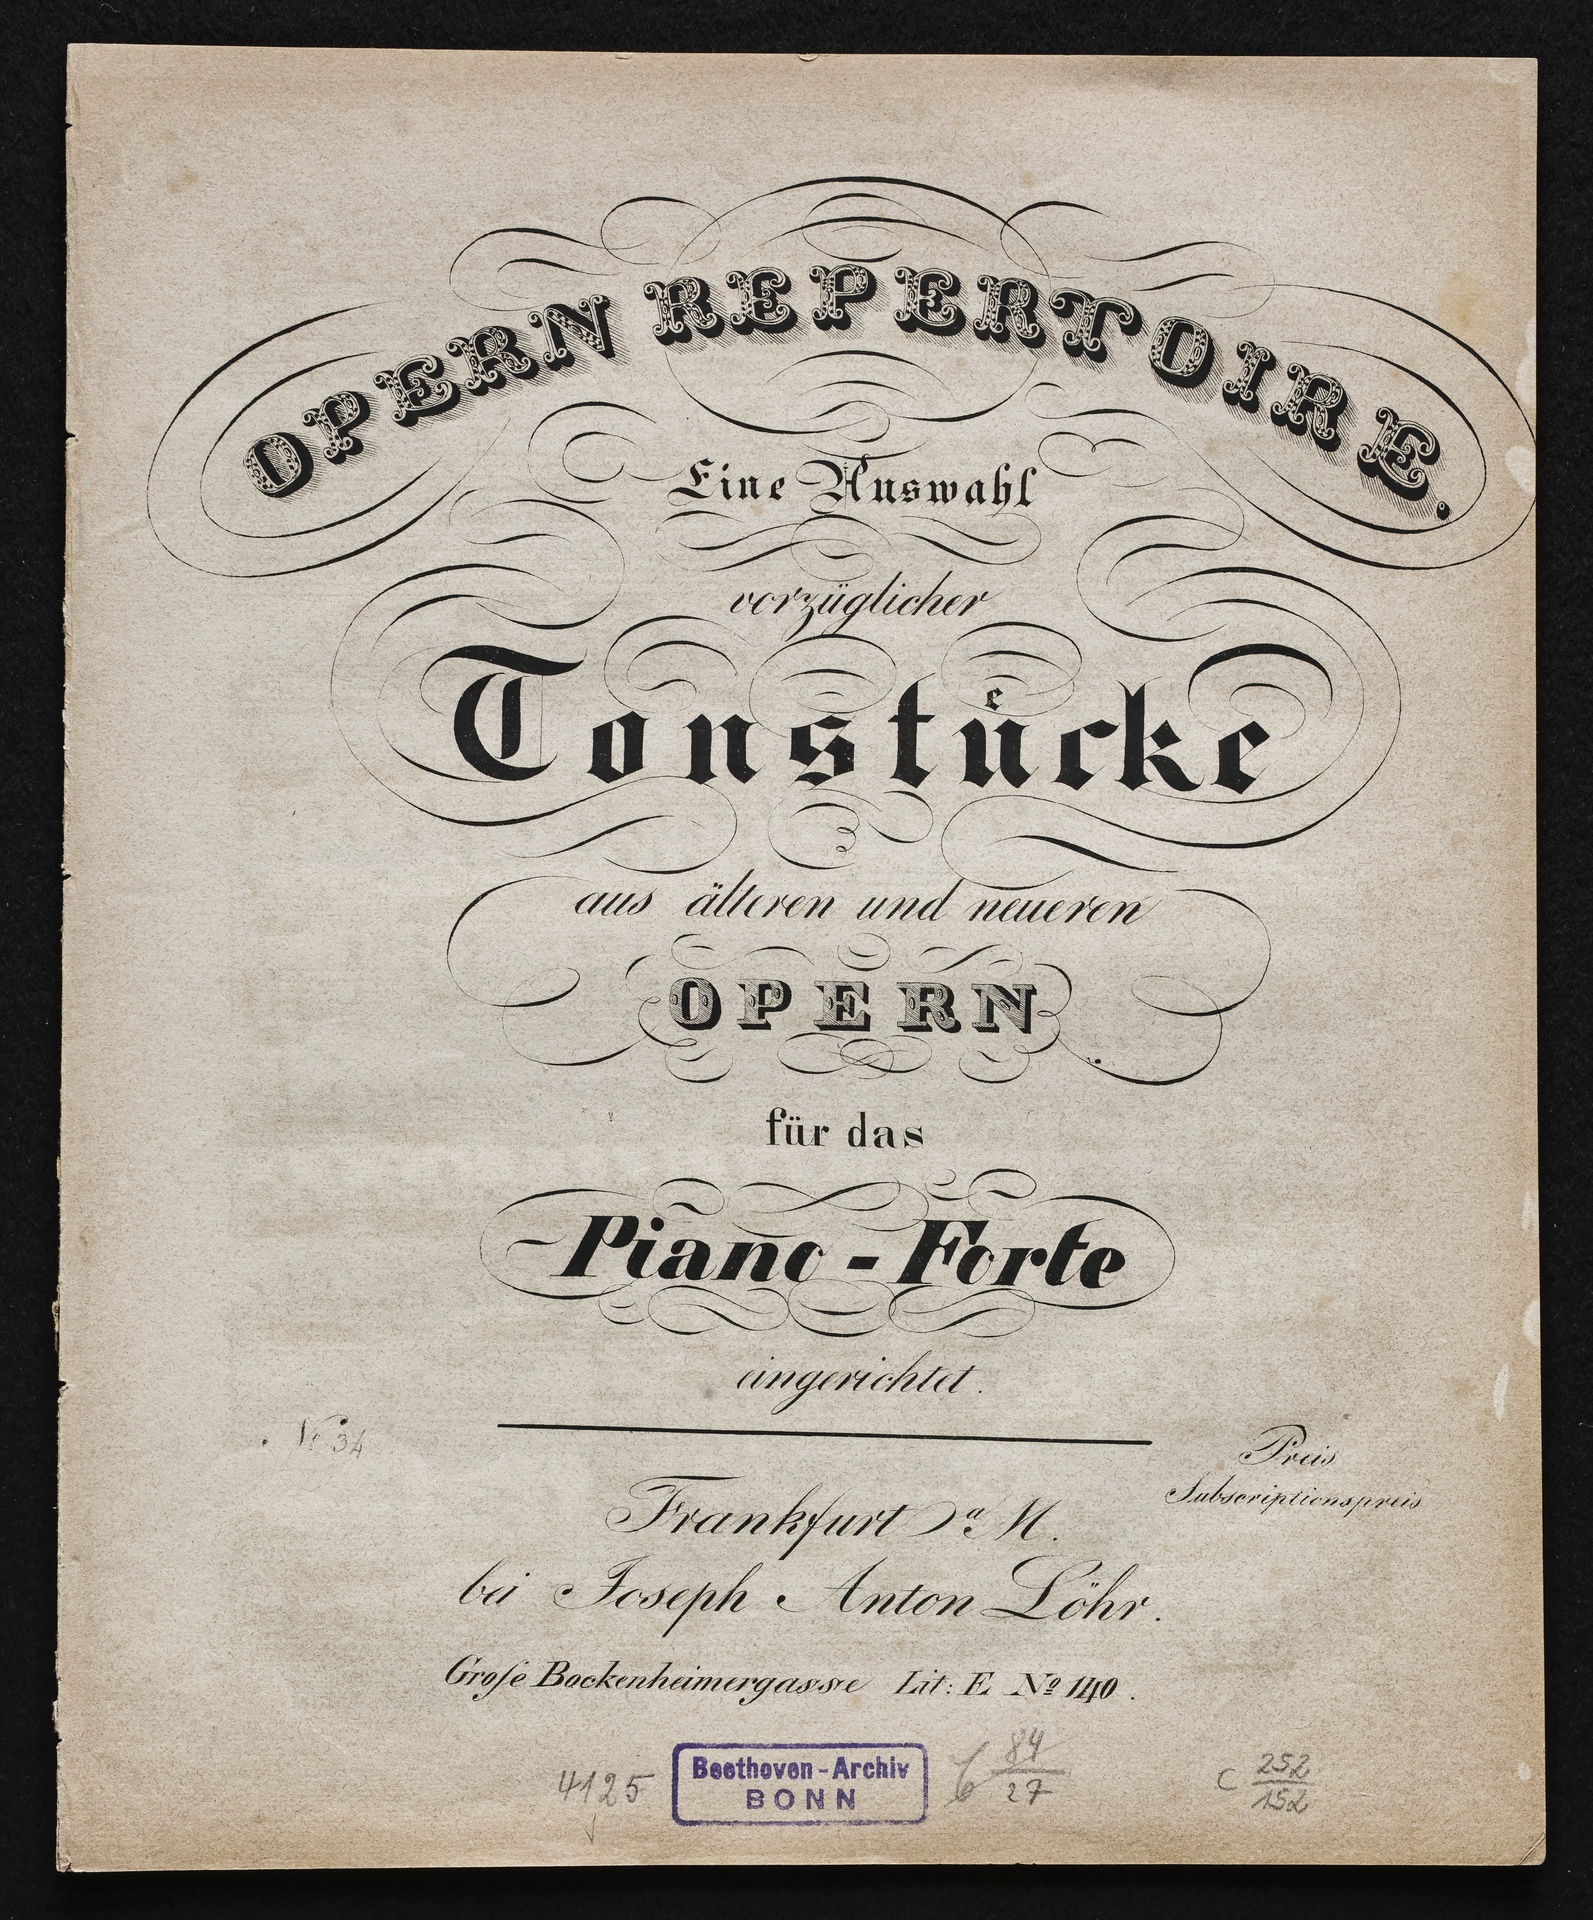 OPERN REPERTOIRE.
Eine Auswahl
vorzüglicher
Tonstuͤcke
aus älteren und neueren
OPERN
für das
Piano-Forte
eingerichtet.
N: 34
Preis
Subscriptionspreis
Frankfurt a. M.
bei Joseph Anton Löhr.
Groſse Bockenheimergasse Lit: E Nº 140.
4125
Beethoven-Archiv
BONN
84
27
C 252
152